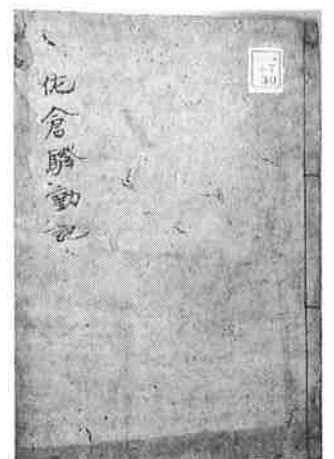 佐倉騒動記
7
30